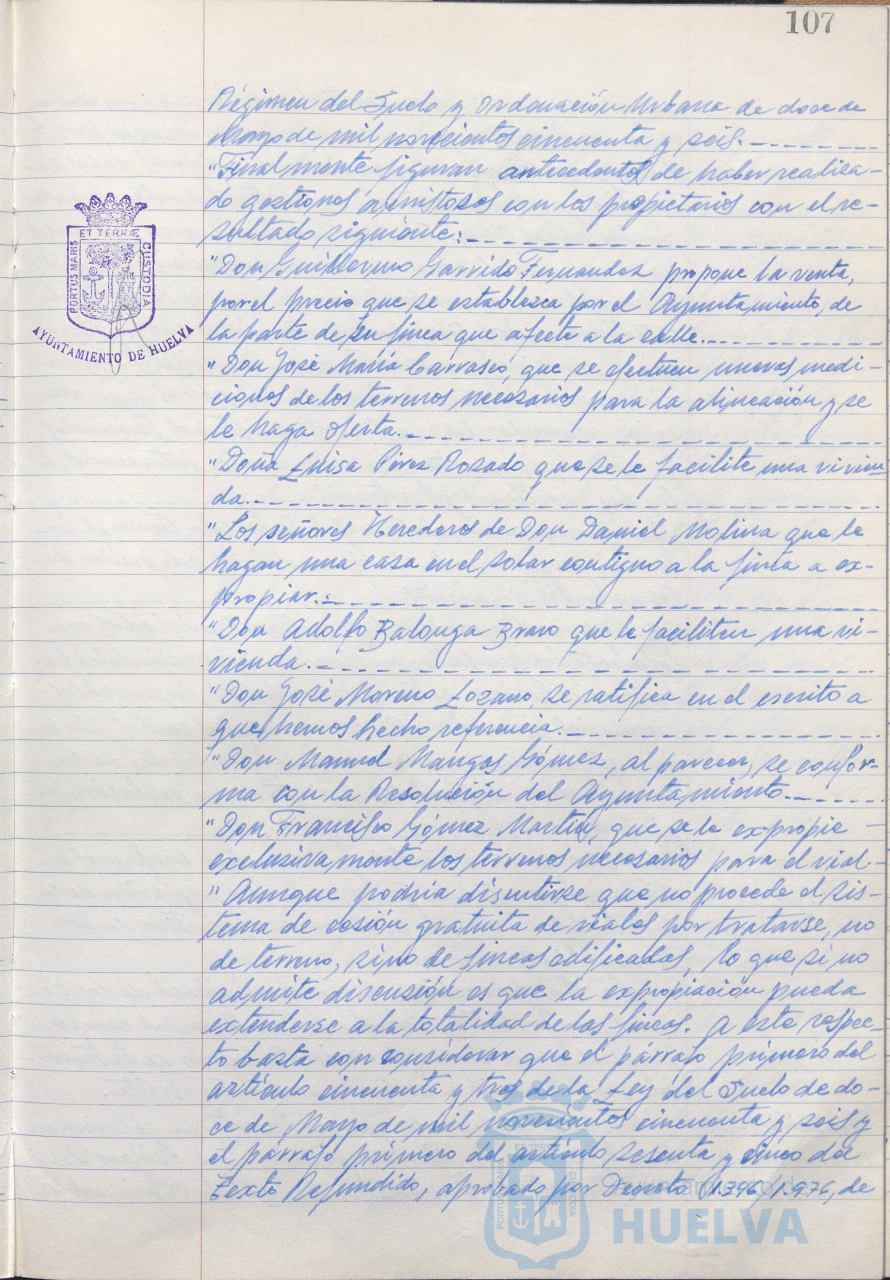 107
Régimen del Suelo y Ordenación Urbana de doce de
Mayo de mil novecientos cincuenta y seis.
"Finalmente figuran antecedentes de haber realiza-
do gestiones amistosas con los propietarios con el re-
sultado siguiente:
"Don Guillermo Garrido Fernandez propone la venta,
por el precio que se establezca por el Ayuntamiento, de
la parte de su finca que afecte a la calle.
"Don José María Carrasco, que se efectuen nuevas medi-
ciones de los terrenos necesarios para la alineación y se
le haga oferta.
"Doña Luisa Pérez Rozado que se le facilite una vivien
da.
"Los señores Herederos de Don Daniel Molina que le
hagan una casa en el solar contiguo a la finca a ex-
propiar.
"Don Adolfo Balonga Bravo que le faciliten una vi-
vienda.
"Don José Moreno Lozano, se ratifica en el escrito a
que hemos hecho referencia.
"Don Manuel Mangas Gómez, al parecer, se confor-
ma con la Resolución del Ayuntamiento.
"Don Francisco Gómez Martin, que se le expropie
exclusivamente los terrenos necesarios para el vial.
" Aunque podria discutirse que no procede el sis-
tema de cesión gratuita de viales por tratarse, no
de terreno, sino de fincas edificadas, lo que si no
admite discusión es que la expropiación pueda
extenderse a la totalidad de las fincas. A este respec-
to basta con considerar que el párrafo primero del
artículo cincuenta y tres de la Ley del Suelo de do-
ce de Mayo de mil novecientos cincuenta y seis y
el párrafo primero del artículo sesenta y cinco del
Texto Refundido, aprobado por Decreto 1.346/1.976, de
PORTUS MARIS
ET TERRÆ
CUSTODIA
AYUNTAMIENTO DE HUELVA
HUELVA